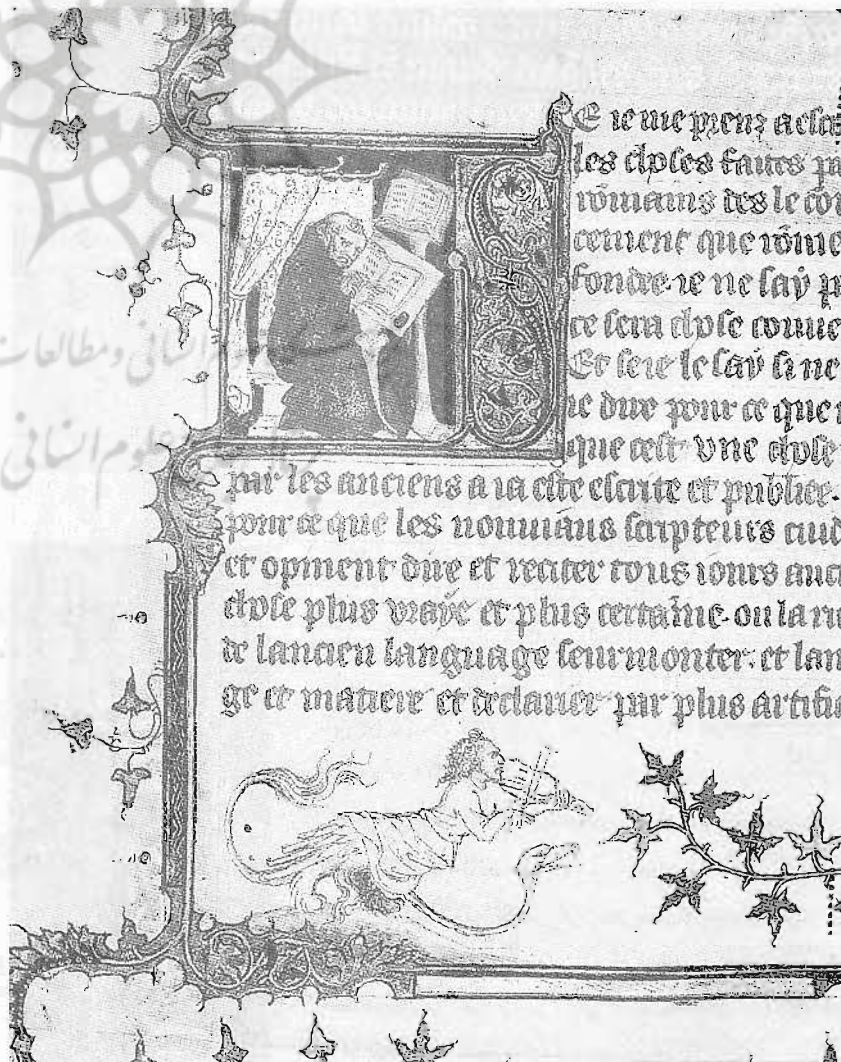 E ie me prenz a esc
les choses faites pa
rōmains des le cōr
cement que rōme
fondre ie ne say p
ce sera chose conue
Et se ie le say si ne
ie dire pour ce que
que cest vne chose
par les anciens a ia este escrite et publiee.
pour ce que les nouuiaus scripteurs cuid
et opinent dire et reciter tous iours aucu
chose plus vraye et plus certaine. ou la ru
de lancien language seurmonter. et lan
ge et matiere et declairer par plus artifi
انسانی و مطالعات
علوم انسانی